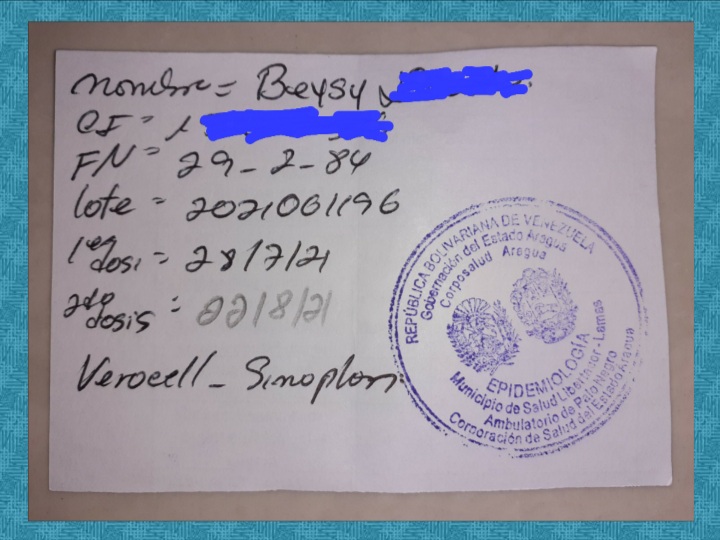 nombre = Beysy
CI =
FN = 29-2-84
lote = 2021061196
1era dosi = 28/7/21
2do dosis = 22/8/21
Verocell - Sinophar
REPÚBLICA BOLIVARIANA DE VENEZUELA
Gobernación del Estado Aragua
Corposalud Aragua
EPIDEMIOLOGÍA
Municipio de Salud Libertador - Lamas
Ambulatorio de Palo Negro
Corporación de Salud del Estado Aragua